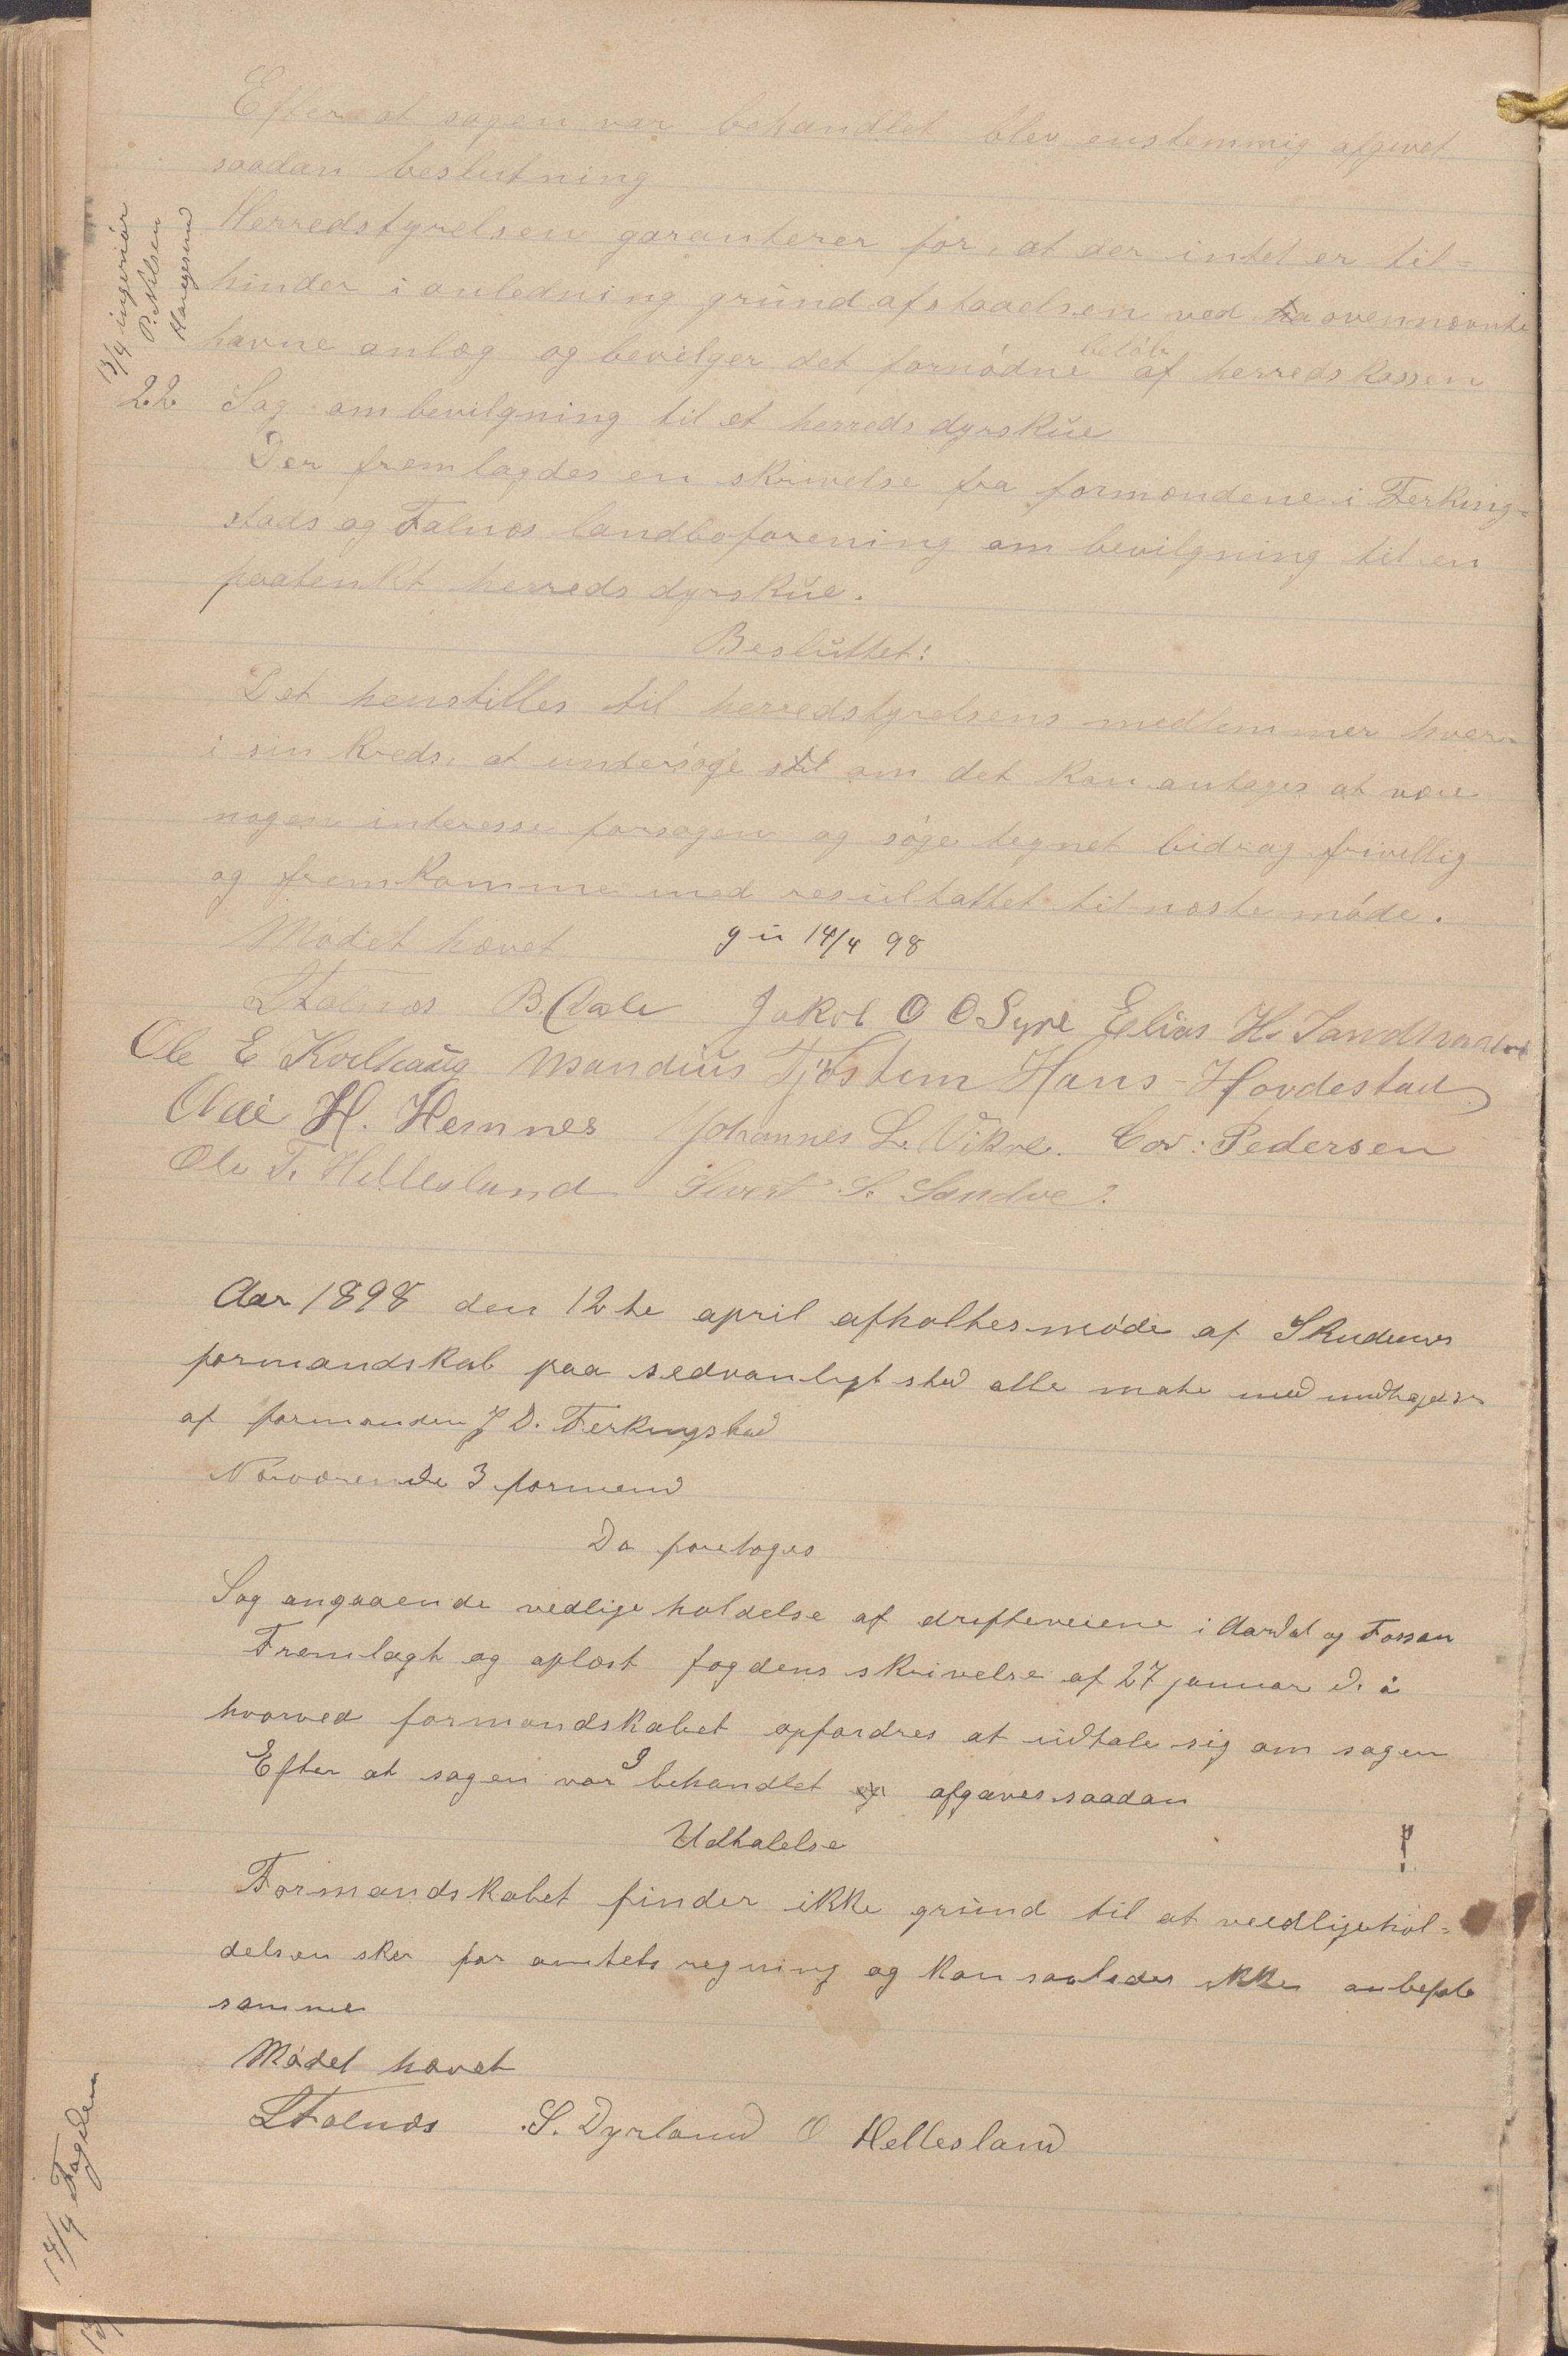 Efter at sagen var behandlet blev enstemmig afgivet
saadan beslutning
Herredstyrelsen garanterer for, at der intet er til=
hinder i anledning grundafstaaelsen ved ovennævnte
havne anlæg og bevilger det fornødne beløb af herredskassen
13/4 ingeniør
P. Nilsen
Haugesund
22 Sag om bevilgning til et herreds dyrskue
Der fremlagdes en skrivelse fra formændene i Ferking=
stads og Falnæs landboforening om bevilgning til en
paatenkt herreds dyrskue.
Besluttet:
Det henstilles til herredstyrelsens medlemmer hver
i sin kreds, at undersøge om det kan antages at være
nogen interesse for sagen og søge tegnet bidrag frivillig
og fremkomme med resultattet til næste møde.
Mødet hævet 14/4 98
L Falnæs B. Dale Jakob O O Syre Elias H. Sandhaaland
Ole E Kvilhaug Mandius Tjøstem Hans Hovdestad
H. Hemnes Johannes L. Vikre. Cor: Pedersen
Ole T. Hellesland Sivert S. Sandve
Aar 1898 den 12te april afholtes møde af Skudenes
formandskab paa sedvanligt sted alle møtte med undtagelse
af formanden J D. Ferkingstad
Nærværende 3 formænd
Da foretoges
Sag angaaende vedlige holdelse af drifteveiene i Aardal og Fossan
Fremlagt og oplæst fogdens skrivelse af 27 januar d. å
hvorved formandskabet opfordres at udtale sig om sagen
Efter at sagen var behandlet og afgaves saadan
Udtalelse
Formandskabet finder ikke grund til at veedligehol=
delsen sker for amtets regning og kan saaledes ikke anbefale
samme
Mødet hævet
L Falnæs S. Dyrland O Hellesland
14/4 Fogden